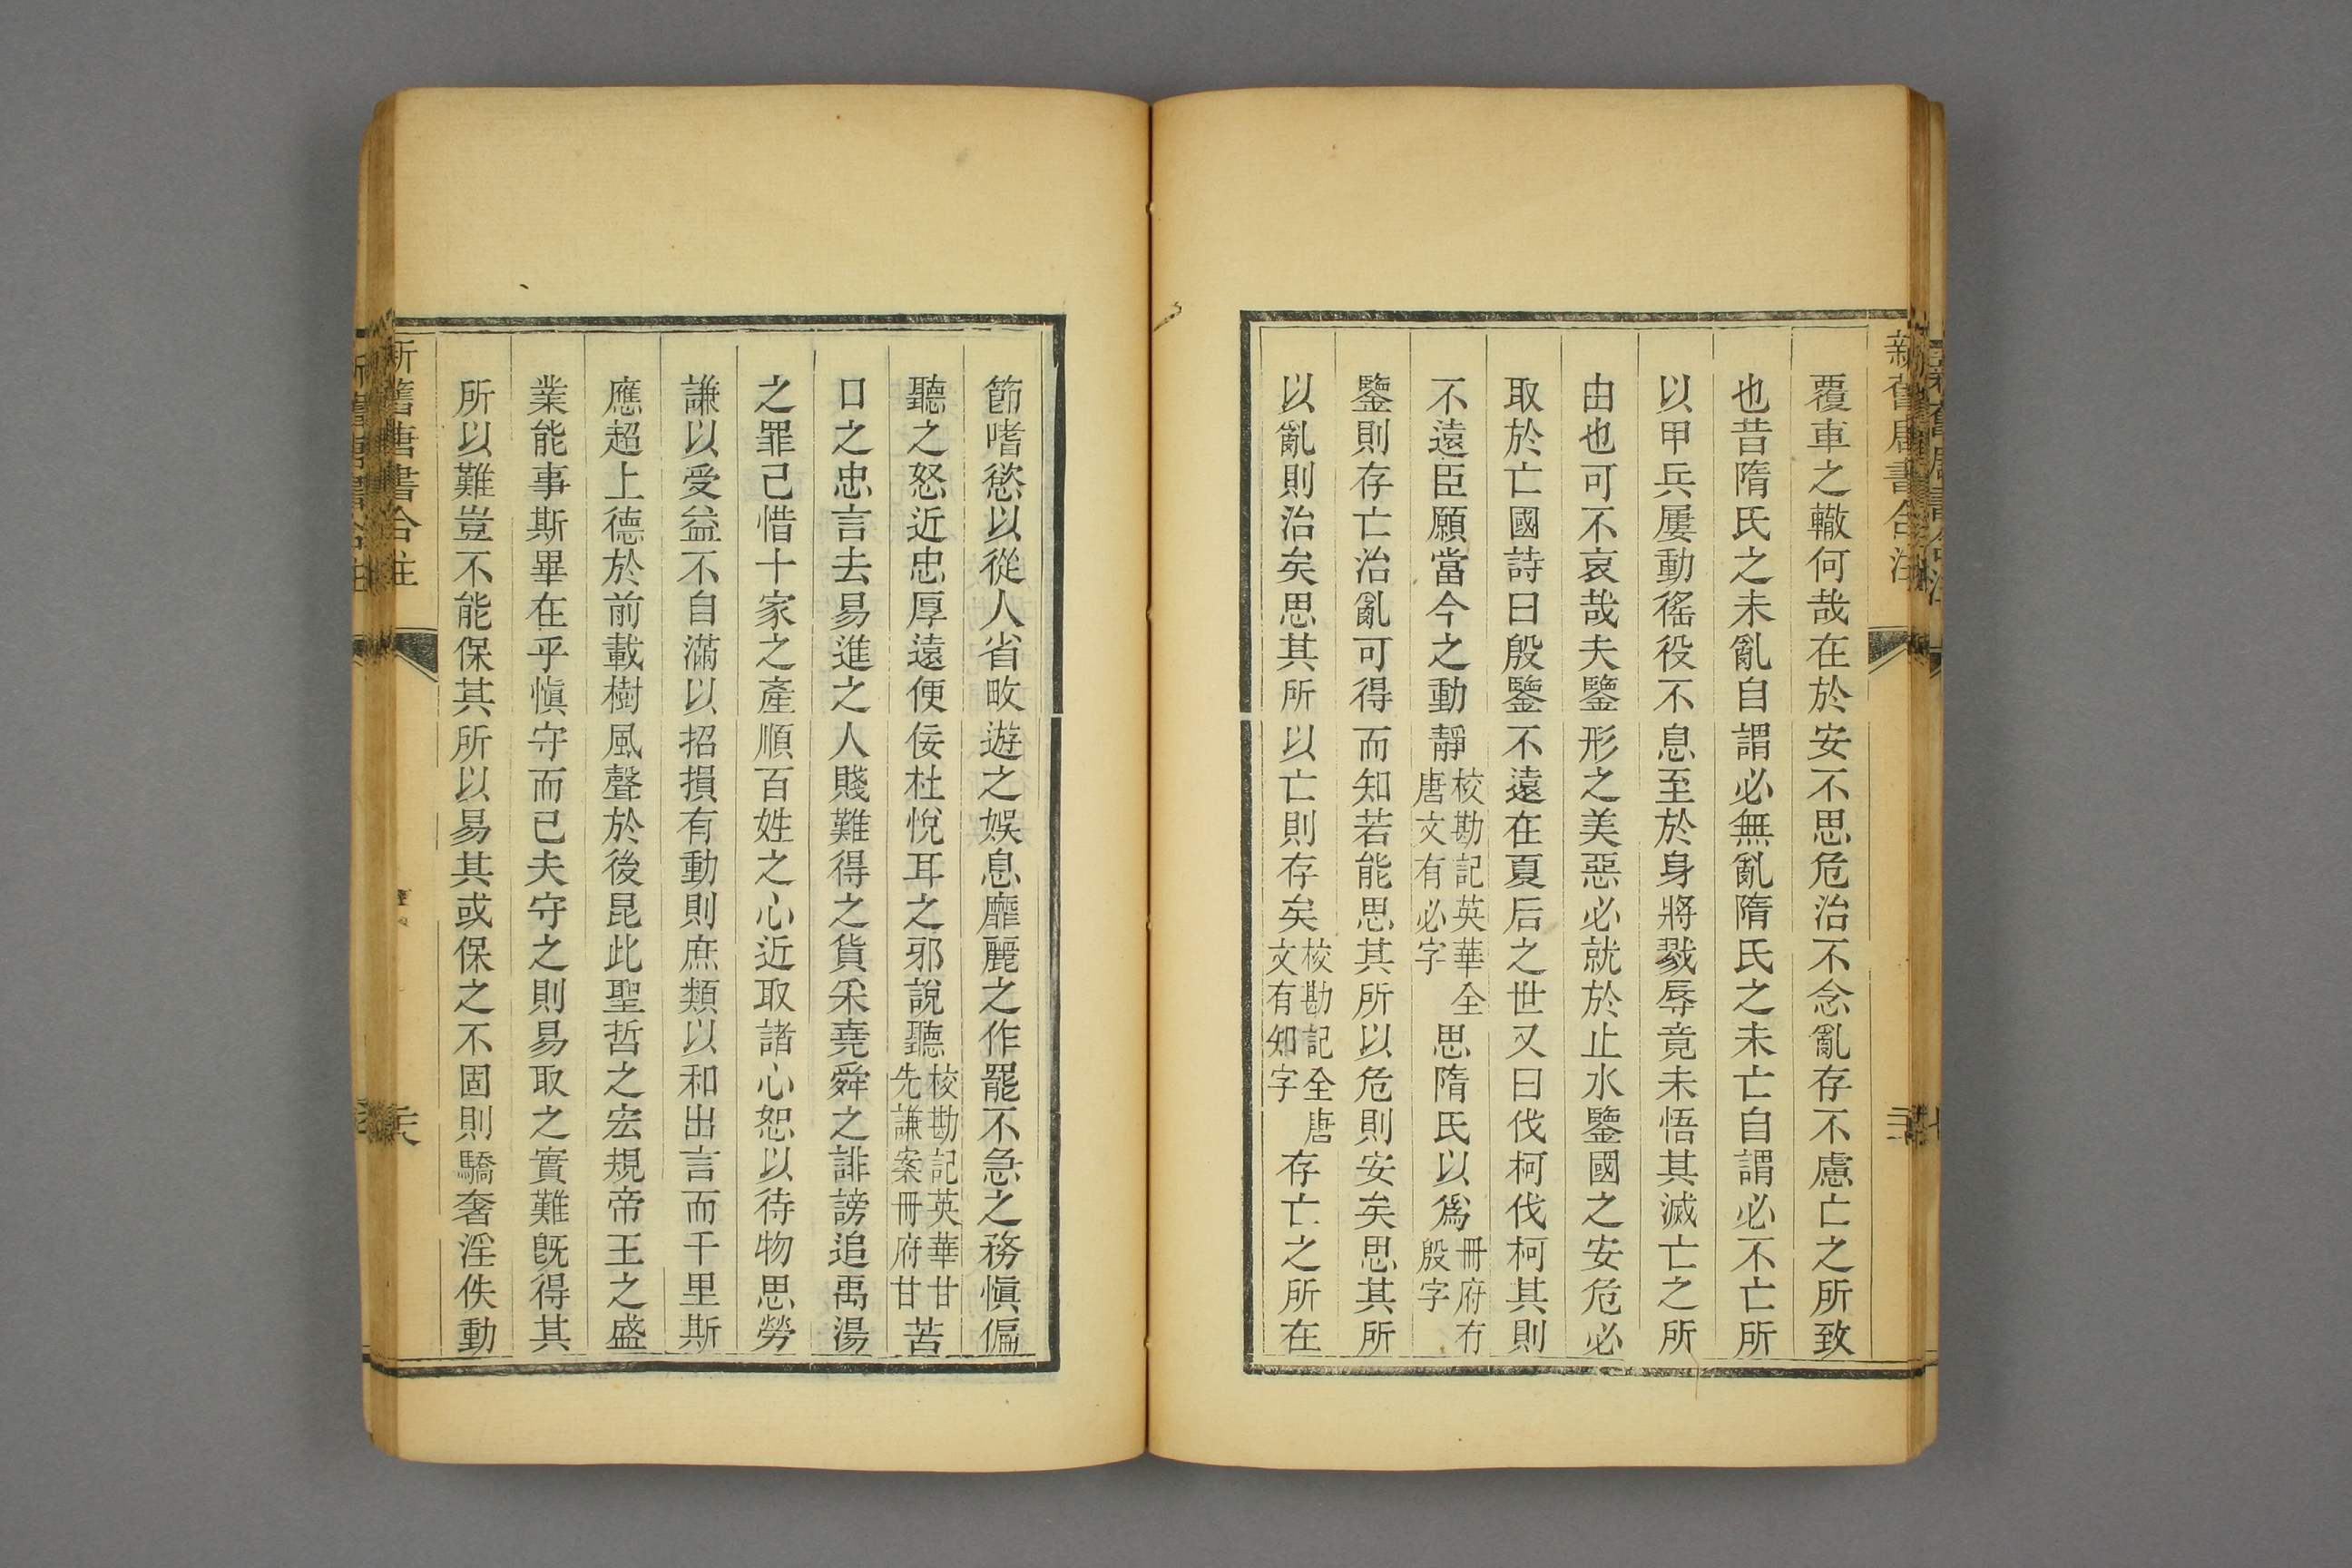 新舊唐書合注
覆車之轍何哉在於安不思危治不念亂存不慮亡之所致
也昔隋氏之未亂自謂必無亂隋氏之未亡自謂必不亡所
以甲兵屢動徭役不息至於身將戮辱竟未悟其滅亡之所
由也可不哀哉夫鑒形之美惡必就於止水鑒國之安危必
取於亡國詩曰殷鑒不遠在夏后之世又曰伐柯伐柯其則
不遠臣願當今之動靜校勘記英華全唐文有必字思隋氏以爲冊府有殷字
鑒則存亡治亂可得而知若能思其所以危則安矣思其所
以亂則治矣思其所以亡則存矣校勘記全唐文有知字存亡之所在
節嗜慾以從人省畋遊之娛息靡麗之作罷不急之務愼偏
聽之怒近忠厚遠便佞杜悅耳之邪說聽校勘記英華甘先謙案冊府甘苦
口之忠言去易進之人賤難得之貨采堯舜之誹謗追禹湯
之罪己惜十家之產順百姓之心近取諸心恕以待物思勞
謙以受益不自滿以招損有動則庶類以和出言而千里斯
應超上德於前載樹風聲於後昆此聖哲之宏規帝王之盛
業能事斯畢在乎愼守而已夫守之則易取之實難既得其
所以難豈不能保其所以易其或保之不固則驕奢淫佚動
新舊唐書合注